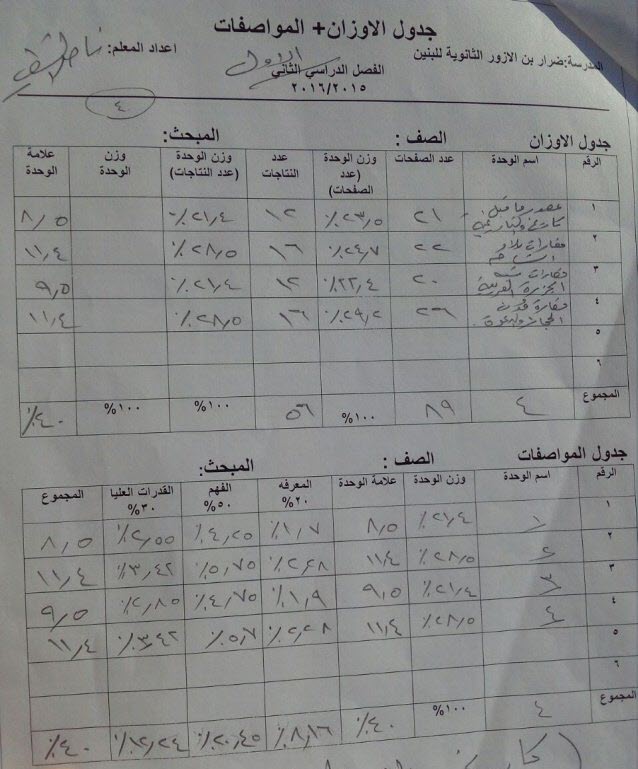 جدول الاوزان+ المواصفات
المدرسة:ضرار بن الازور الثانوية للبنين
الفصل الدراسي الثاني
الاول
اعداد المعلم:
٢٠١٦/٢٠١٥
٤
جدول الاوزان الصف : المبحث:
الرقم اسم الوحدة عدد الصفحات وزن الوحدة (عدد الصفحات) عدد النتاجات وزن الوحدة (عدد النتاجات) وزن الوحدة علامة الوحدة
١ عصور ما قبل ٢١ ٢٣٫٥٪ ١٢ ٢١٫٤٪ ٨٫٥
٢ حضارات بلاد الشام ٢٢ ٢٤٫٧٪ ١٦ ٢٨٫٥٪ ١١٫٤
٣ حضارات شبه الجزيرة العربية ٢٠ ٢٢٫٤٪ ١٢ ٢١٫٤٪ ٩٫٥
٤ حضارة ٢٦ ٢٩٫٢٪ ١٦ ٢٨٫٥٪ ١١٫٤
٥
٦
المجموع ٤ ٨٩ ١٠٠% ٥٦ ١٠٠% ١٠٠% ٤٠٪
جدول المواصفات الصف : المبحث:
الرقم اسم الوحدة وزن الوحدة علامة الوحدة المعرفه ٢٠% الفهم ٥٠% القدرات العليا ٣٠% المجموع
١ ١ ٢١٫٤٪ ٨٫٥ ١٫٧٪ ٤٫٢٥٪ ٢٫٥٥٪ ٨٫٥
٢ ٢ ٢٨٫٥٪ ١١٫٤ ٢٫٢٨٪ ٥٫٧٥٪ ٣٫٤٢٪ ١١٫٤
٣ ٣ ٢١٫٤٪ ٩٫٥ ١٫٩٪ ٤٫٧٥٪ ٢٫٨٥٪ ٩٫٥
٤ ٤ ٢٨٫٥٪ ١١٫٤ ٢٫٢٨٪ ٥٫٧٪ ٣٫٤٢٪ ١١٫٤
٥
٦
المجموع ٤ ١٠٠% ٤٠٪ ٨٫١٦٪ ٢٠٫٤٥٪ ١٢٫٢٤٪ ٤٠٪